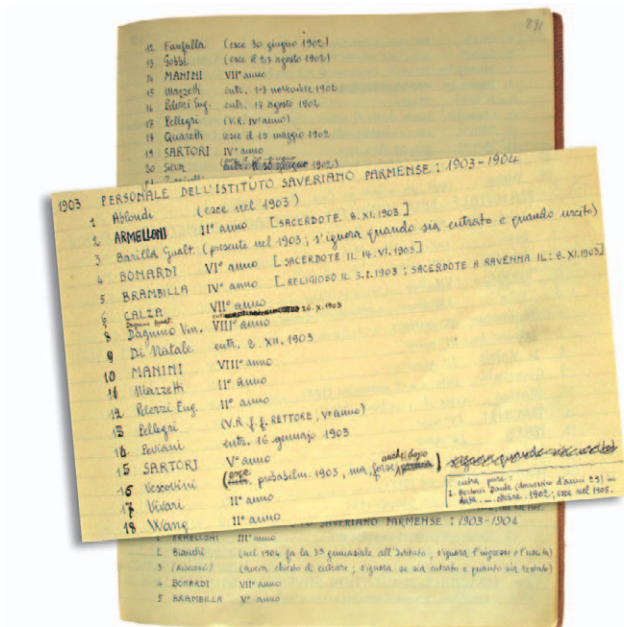 291
12 Fanfulla (esce 30 giugno 1902)
13 Gobbi (esce il 23 agosto 1902)
14 MANINI VII° anno
15 Mazzetti entr. 1-3 novembre 1902
16 Pelerzi Eug. entr. 18 agosto 1902
17 Pellegri (V.R. IV° anno)
18 Quaretti (esce il 19 maggio 1902)
19 SARTORI IV° anno
20 1902)
1903 PERSONALE DELL'ISTITUTO SAVERIANO PARMENSE: 1903-1904
1 Ablondi (esce nel 1903)
2 ARMELLONI II° anno [SACERDOTE 8.XI.1903]
3 Barilla Gualt. (presente nel 1903; s'ignora quando sia entrato e quando uscito)
4 BONARDI VI° anno [SACERDOTE IL 14.VI.1903]
5 BRAMBILLA IV° anno [RELIGIOSO IL 3.1.1903; SACERDOTE A RAVENNA IL: 8.XI.1903]
6 CALZA VII° anno
Dagnino 26.X.1903
8 Dagnino Vin. VIII° anno
9 Di Natale entr. 8.XII.1903
10 MANINI VIII° anno
11 Mazzetti II° anno
12 Pelerzi Eug. II° anno
13 Pellegri (V.R. f.f. RETTORE, V° anno)
14 entr. 16 gennajo 1903
15 SARTORI V° anno
16 Vescovini (esce probabilm. 1903, ma forse anche dopo)
17 Vivari II° anno
18 Wang II° anno
entra pure:
1. Bertoni Dante (d'anni 29) in
data ... ottobre 1902; esce nel 1905.
SAVERIANO PARMENSE: 1903-1904
1 ARMELLONI III° anno
2 Bianchi (nel 1904 fa la 5ª ginnasiale all'Istituto; s'ignora l'ingresso e l'uscita)
3 (aveva chiesto d'entrare; s'ignora se sia entrato e quanto sia restato)
4 BONARDI VII° anno
5 BRAMBILLA V° anno